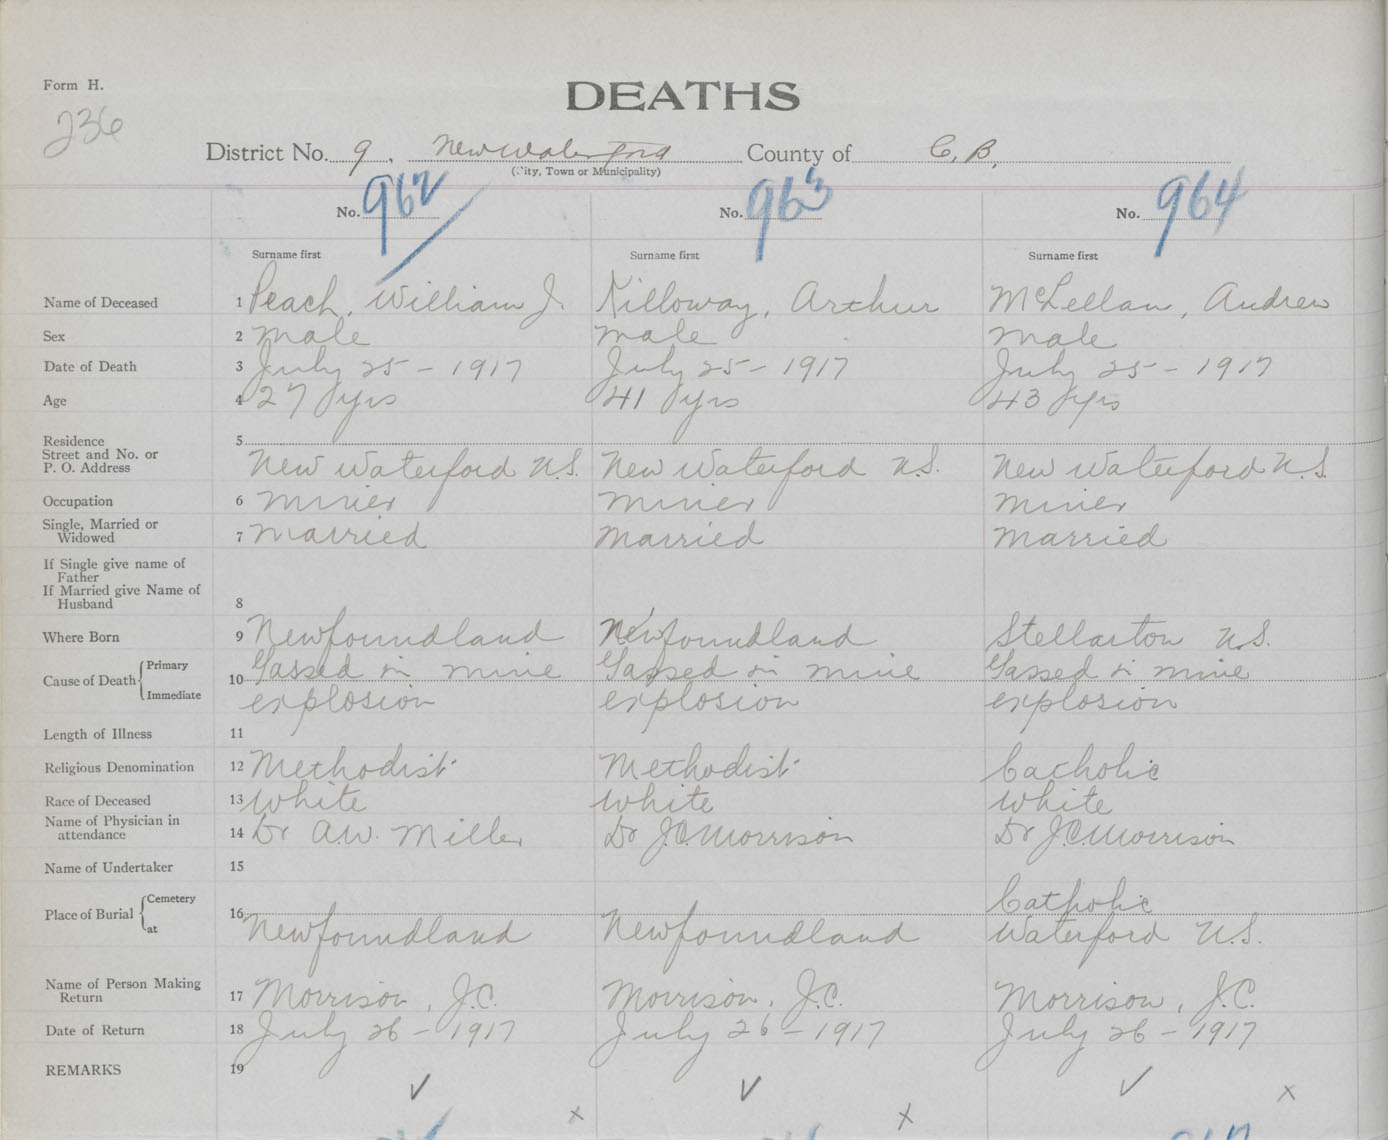 Form H.
DEATHS
236
District No. 9, New Waterford County of C.B.
(City, Town or Municipality)
No. 962 No. 963 No. 964
Surname first Surname first Surname first
Name of Deceased 1 Peach, William J. Killoway, Arthur McLellan, Andrew
Sex 2 male male male
Date of Death 3 July 25 - 1917 July 25 - 1917 July 25 - 1917
Age 4 27 yrs 41 yrs 43 yrs
Residence 5
Street and No. or
P. O. Address New Waterford N.S. New Waterford N.S. New Waterford N.S.
Occupation 6 miner miner miner
Single, Married or
Widowed 7 married married married
If Single give name of
Father
If Married give Name of
Husband 8
Where Born 9 Newfoundland Newfoundland Stellarton N.S.
Cause of Death Primary 10 Gassed in mine Gassed in mine Gassed in mine
Immediate explosion explosion explosion
Length of Illness 11
Religious Denomination 12 Methodist Methodist Catholic
Race of Deceased 13 white white white
Name of Physician in
attendance 14 Dr A.W. Miller Dr J.C. Morrison Dr J.C. Morrison
Name of Undertaker 15
Place of Burial Cemetery 16 Catholic
at Newfoundland Newfoundland Waterford N.S.
Name of Person Making
Return 17 Morrison, J.C. Morrison, J.C. Morrison, J.C.
Date of Return 18 July 26 - 1917 July 26 - 1917 July 26 - 1917
REMARKS 19